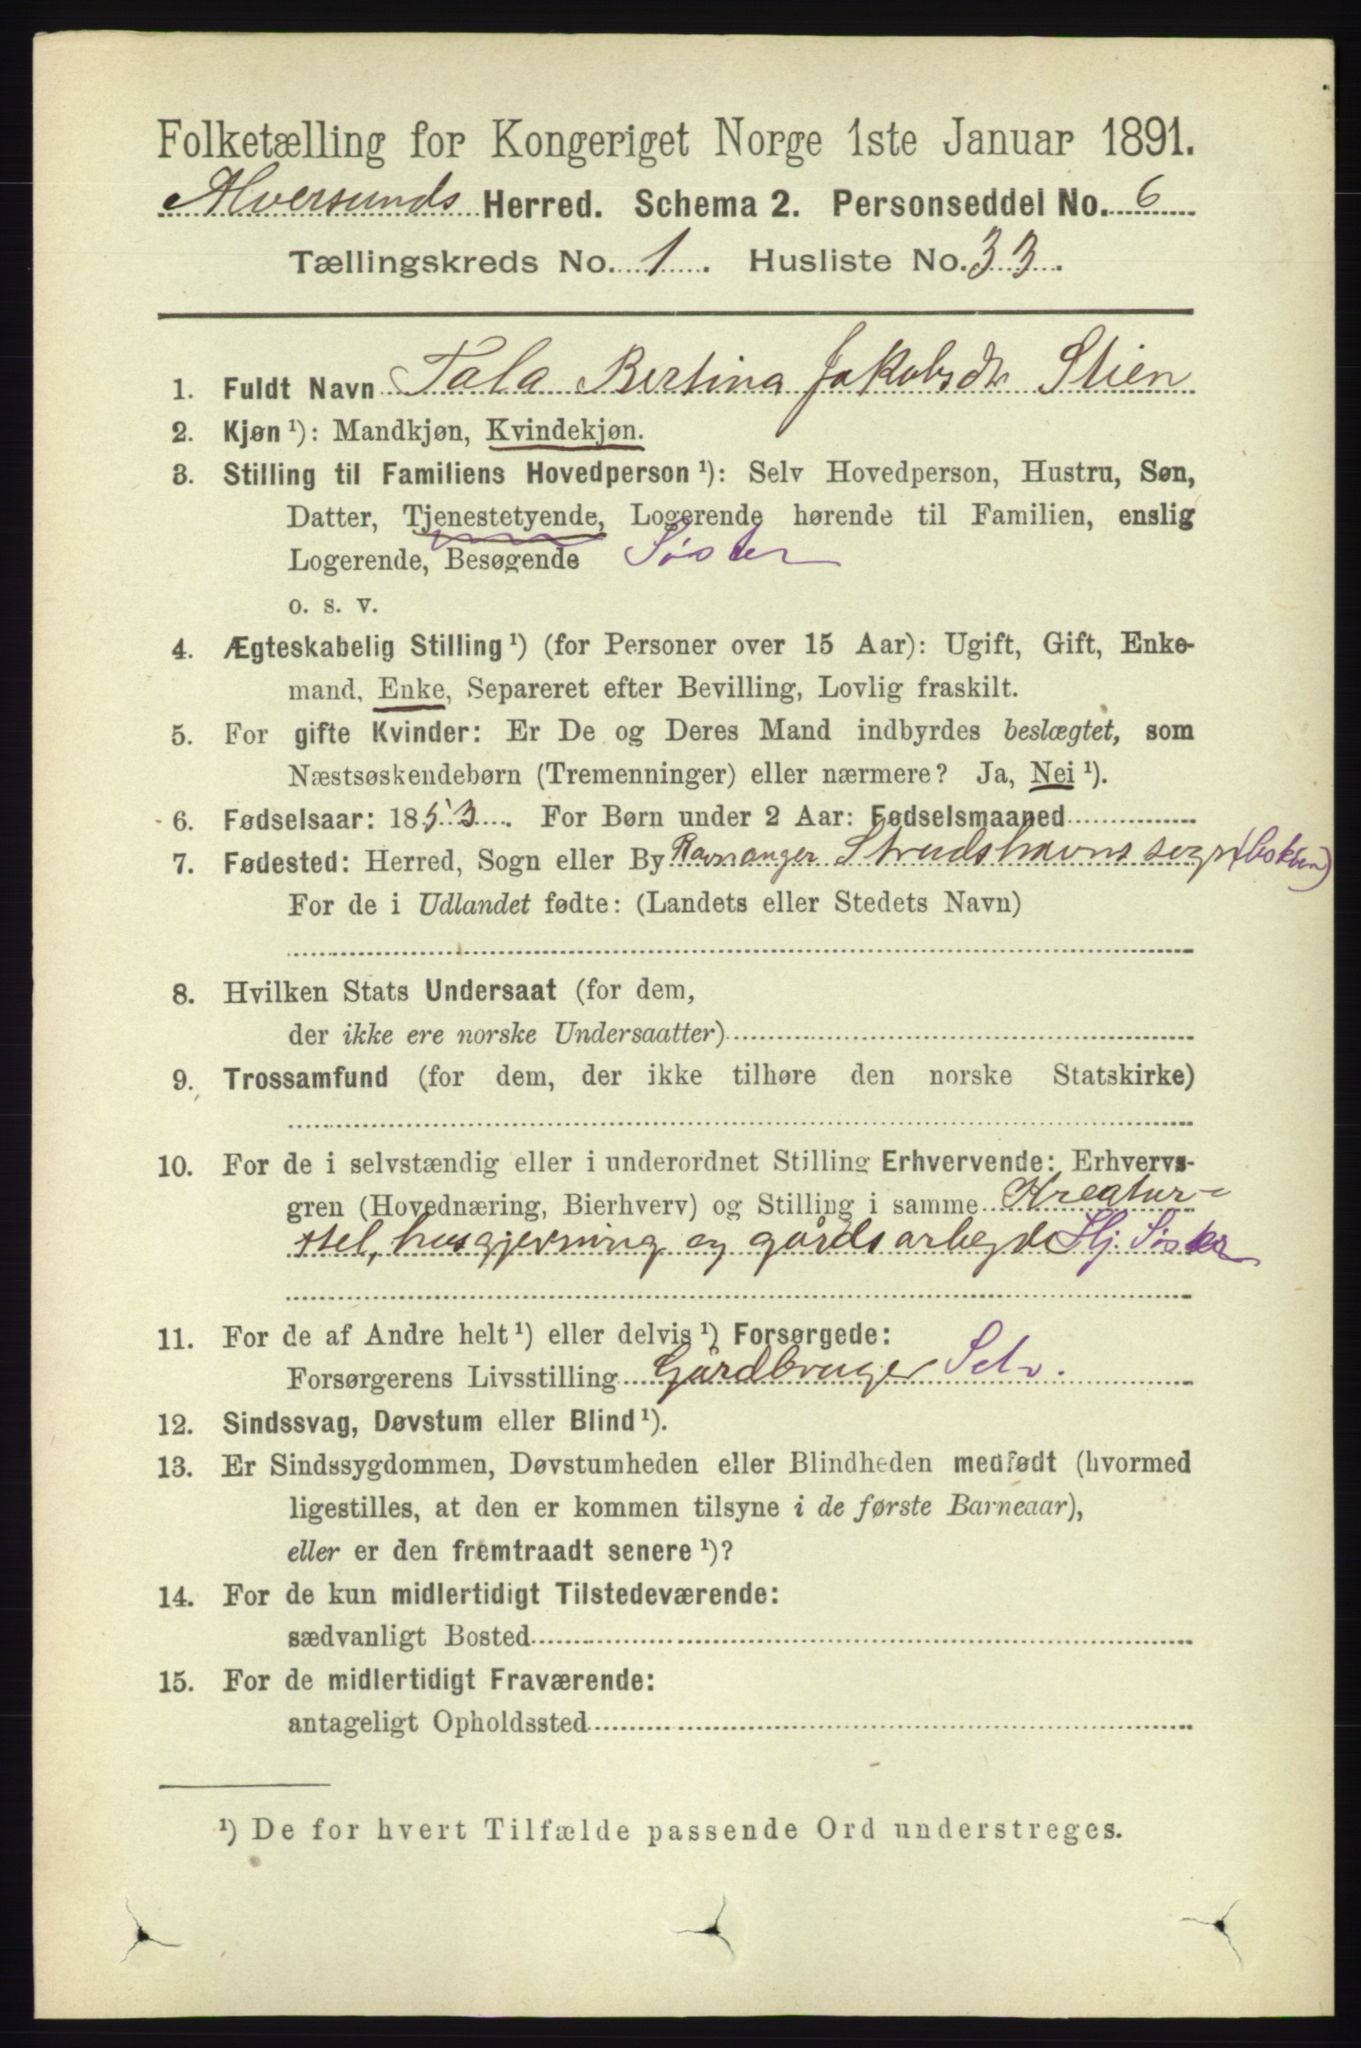 Folketælling for Kongeriget Norge 1ste Januar 1891.
Alversunds Herred. Schema 2. Personseddel No. 6
Tællingskreds No. 1. Husliste No. 33.
1. Fuldt Navn Tala Bertina Jakobsdt Stien
2. Kjøn ¹): Mandkjøn, Kvindekjøn.
3. Stilling til Familiens Hovedperson ¹): Selv Hovedperson, Hustru, Søn,
Datter, Tjenestetyende, Logerende hørende til Familien, enslig
Logerende, Besøgende Søster
o. s. v.
4. Ægteskabelig Stilling ¹) (for Personer over 15 Aar): Ugift, Gift, Enke-
mand, Enke, Separeret efter Bevilling, Lovlig fraskilt.
5. For gifte Kvinder: Er De og Deres Mand indbyrdes beslægtet, som
Næstsøskendebørn (Tremenninger) eller nærmere? Ja, Nei ¹).
6. Fødselsaar: 1853. For Børn under 2 Aar: Fødselsmaaned
7. Fødested: Herred, Sogn eller By Ravnanger Strudshavns sogn
For de i Udlandet fødte: (Landets eller Stedets Navn)
8. Hvilken Stats Undersaat (for dem,
der ikke ere norske Undersaatter)
9. Trossamfund (for dem, der ikke tilhøre den norske Statskirke)
10. For de i selvstændig eller i underordnet Stilling Erhvervende: Erhvervs-
gren (Hovednæring, Bierhverv) og Stilling i samme Kreatur-
stel, husgjerning og gårdsarbejde Hj. Søster
11. For de af Andre helt ¹) eller delvis ¹) Forsørgede:
Forsørgerens Livsstilling Gårdbruger Selv.
12. Sindssvag, Døvstum eller Blind ¹).
13. Er Sindssygdommen, Døvstumheden eller Blindheden medfødt (hvormed
ligestilles, at den er kommen tilsyne i de første Barneaar),
eller er den fremtraadt senere ¹)?
14. For de kun midlertidigt Tilstedeværende:
sædvanligt Bosted
15. For de midlertidigt Fraværende:
antageligt Opholdssted
¹) De for hvert Tilfælde passende Ord understreges.